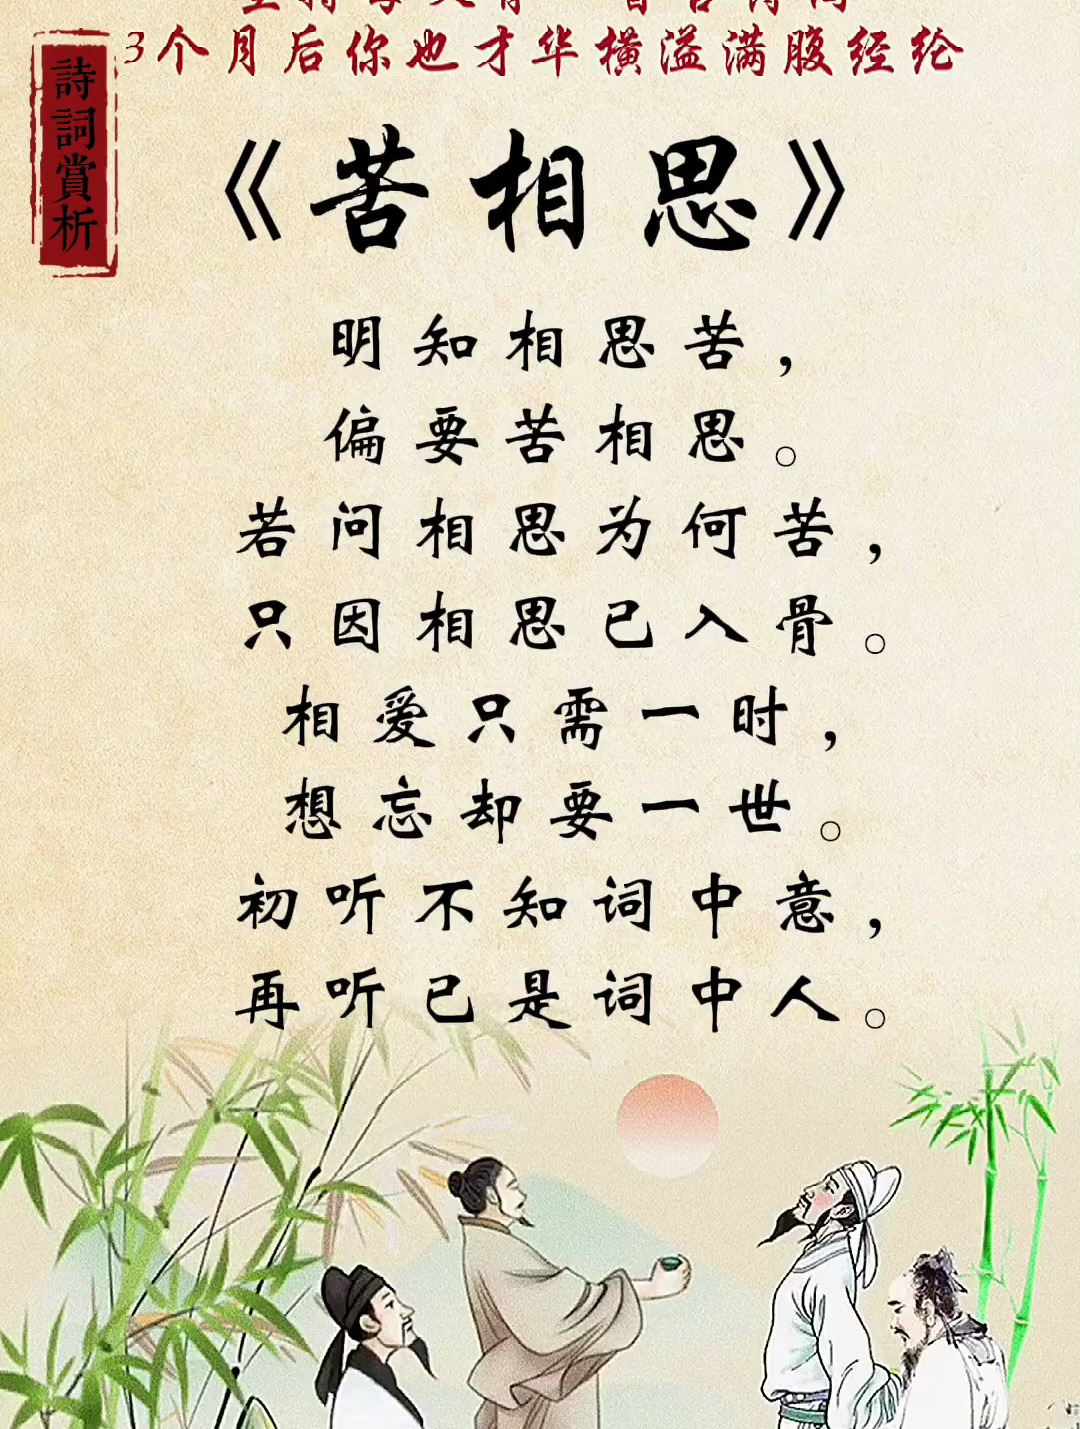 3个月后你也才华横溢满腹经纶
詩詞賞析
《苦相思》
明知相思苦，
偏要苦相思。
若问相思为何苦，
只因相思已入骨。
相爱只需一时，
想忘却要一世。
初听不知词中意，
再听已是词中人。